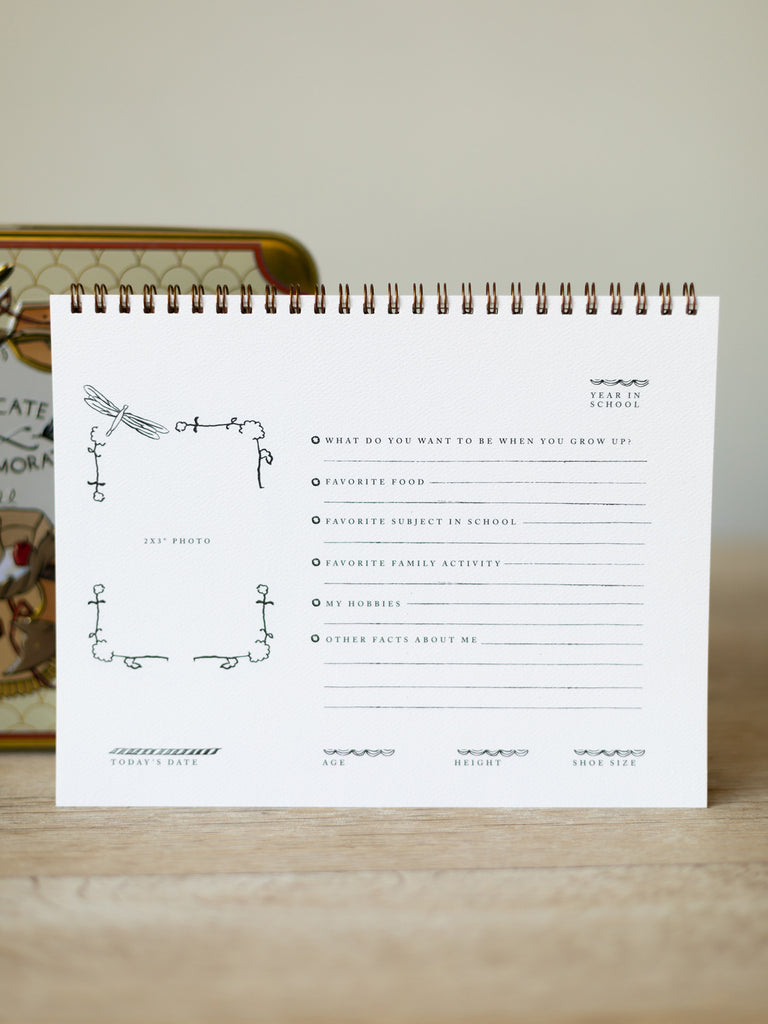 YEAR IN
SCHOOL
WHAT DO YOU WANT TO BE WHEN YOU GROW UP?
FAVORITE FOOD
FAVORITE SUBJECT IN SCHOOL
2X3" PHOTO
FAVORITE FAMILY ACTIVITY
MY HOBBIES
OTHER FACTS ABOUT ME
TODAY'S DATE
AGE
HEIGHT
SHOE SIZE